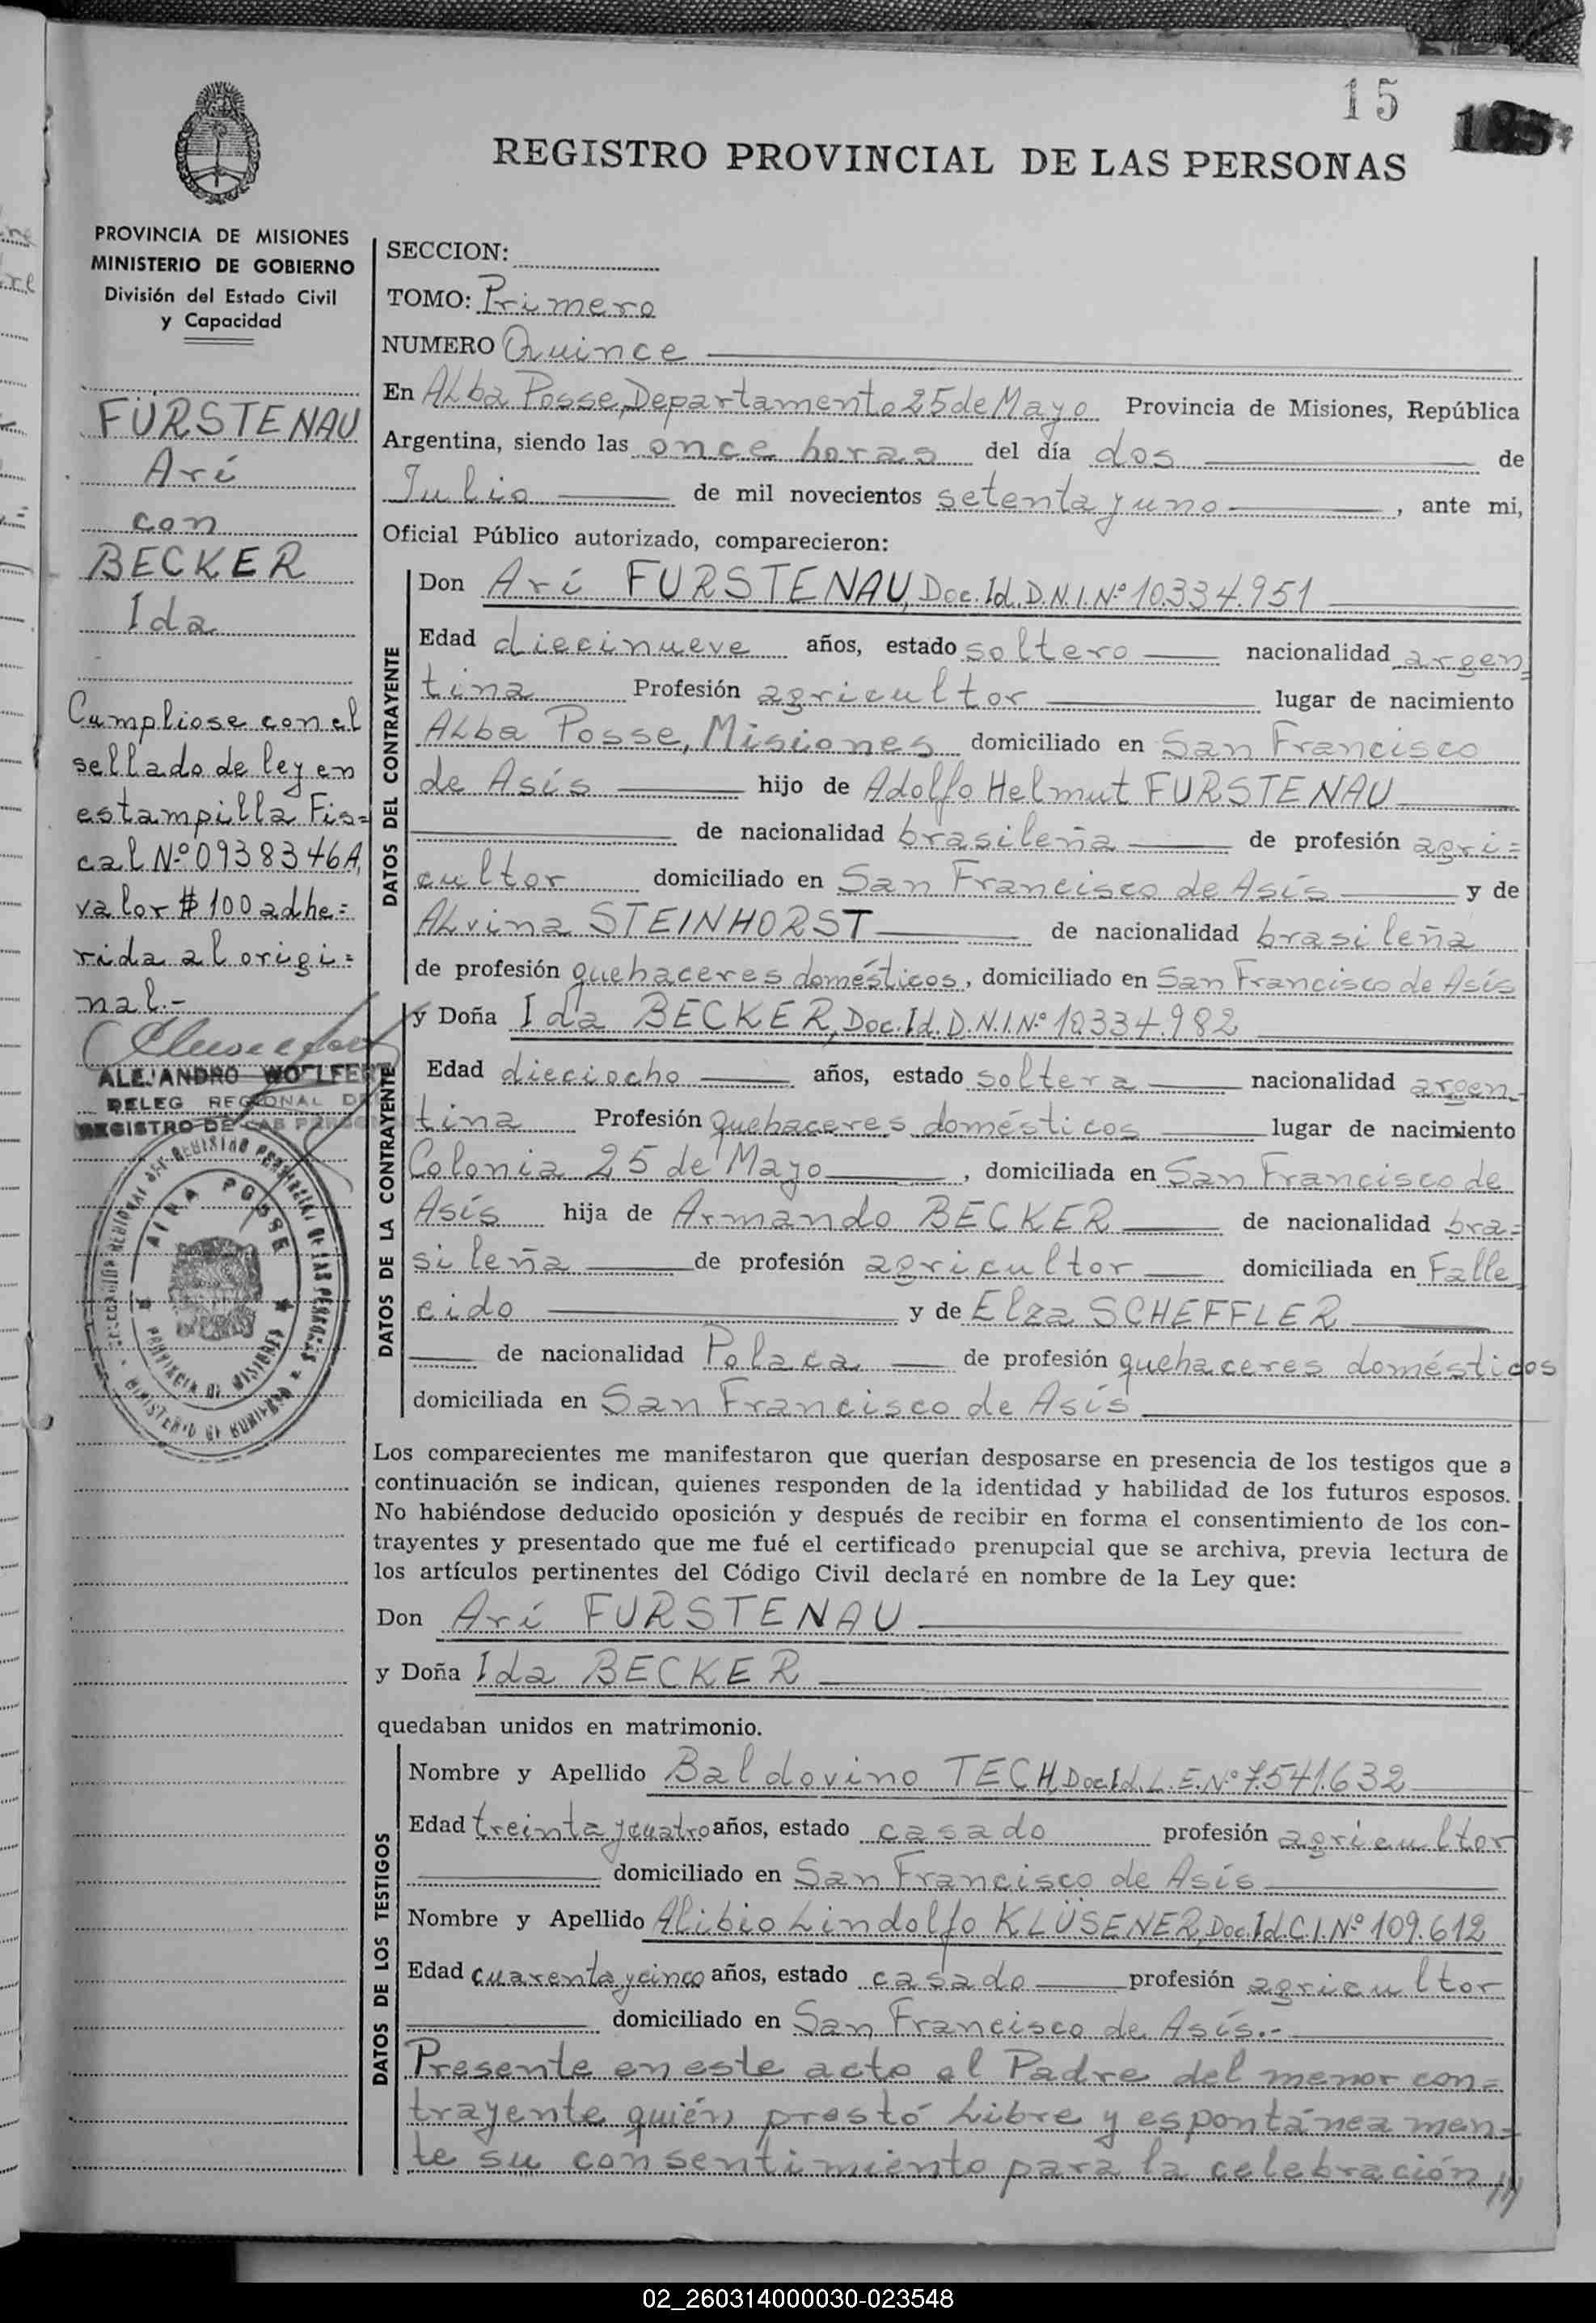 15
REGISTRO PROVINCIAL DE LAS PERSONAS
PROVINCIA DE MISIONES
MINISTERIO DE GOBIERNO
División del Estado Civil
y Capacidad
FÜRSTENAU
Ari
con
BECKER
Ida
Cumpliose con el
sellado de ley en
estampilla Fis=
cal Nº 0938346A,
valor $ 100 adhe=
rida al origi=
nal.-
ALEJANDRO WOLFERT
DELEG REGIONAL DE
REGISTRO DE LAS PERSO
SECCION:
TOMO: Primero
NUMERO Quince
En Alba Posse, Departamento 25 de Mayo Provincia de Misiones, República
Argentina, siendo las once horas del día dos de
Julio de mil novecientos setenta y uno, ante mi,
Oficial Público autorizado, comparecieron:
DATOS DEL CONTRAYENTE
Don Ari FURSTENAU, Doc. Id. D.N.I. Nº 10.334.951
Edad diecinueve años, estado soltero nacionalidad argen=
tina Profesión agricultor lugar de nacimiento
Alba Posse, Misiones domiciliado en San Francisco
de Asís hijo de Adolfo Helmut FURSTENAU
de nacionalidad brasileña de profesión agri=
cultor domiciliado en San Francisco de Asís y de
Alvina STEINHORST de nacionalidad brasileña
de profesión quehaceres domésticos, domiciliado en San Francisco de Asís
DATOS DE LA CONTRAYENTE
y Doña Ida BECKER, Doc. Id. D.N.I. Nº 10.334.982
Edad dieciocho años, estado soltera nacionalidad argen-
tina Profesión quehaceres domésticos lugar de nacimiento
Colonia 25 de Mayo, domiciliada en San Francisco de
Asís hija de Armando BECKER de nacionalidad bra=
sileña de profesión agricultor domiciliada en Falle
cido y de Elza SCHEFFLER
de nacionalidad Polaca de profesión quehaceres domésticos
domiciliada en San Francisco de Asís
Los comparecientes me manifestaron que querían desposarse en presencia de los testigos que a
continuación se indican, quienes responden de la identidad y habilidad de los futuros esposos.
No habiéndose deducido oposición y después de recibir en forma el consentimiento de los con-
trayentes y presentado que me fué el certificado prenupcial que se archiva, previa lectura de
los artículos pertinentes del Código Civil declaré en nombre de la Ley que:
Don Ari FURSTENAU
y Doña Ida BECKER
quedaban unidos en matrimonio.
DATOS DE LOS TESTIGOS
Nombre y Apellido Baldovino TECH, Doc. Id. L.E. Nº 7.541.632
Edad treinta y cuatro años, estado casado profesión agricultor
domiciliado en San Francisco de Asís
Nombre y Apellido Alibio Lindolfo KLÜSENER, Doc. Id. C.I. Nº 109.612
Edad cuarenta y cinco años, estado casado profesión agricultor
domiciliado en San Francisco de Asís.-
Presente en este acto el Padre del menor con=
trayente quién prestó libre y espontáneamen=
te su consentimiento para la celebración ///
02_260314000030-023548